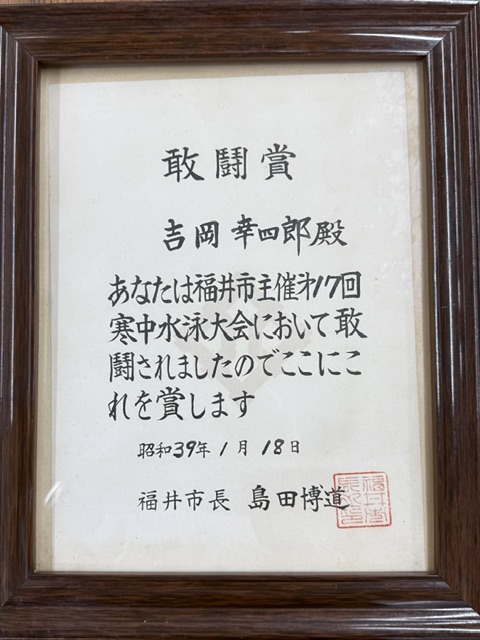 敢闘賞
吉岡幸四郎殿
あなたは福井市主催才17回
寒中水泳大会において敢
闘されましたのでここにこ
れを賞します
昭和39年1月18日
福井市長 島田博道